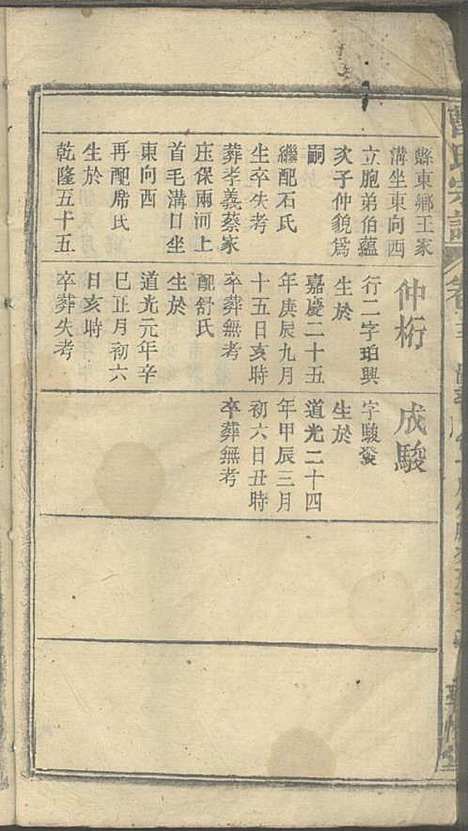 縣東鄉王家
溝坐東向西
立胞弟伯蘊
次子仲貌爲
嗣
繼配石氏
生卒失考
葬孝義蔡家
庄保兩河上
首毛溝口坐
東向西
再配席氏
生於
乾隆五十五
仲桁
行二字珀興
生於
嘉慶二十五
年庚辰九月
十五日亥時
卒葬無考
配舒氏
生於
道光元年辛
巳正月初六
日亥時
卒葬失考
成駿
字駿發
生於
道光二十四
年甲辰三月
初六日丑時
卒葬無考
氏宗譜